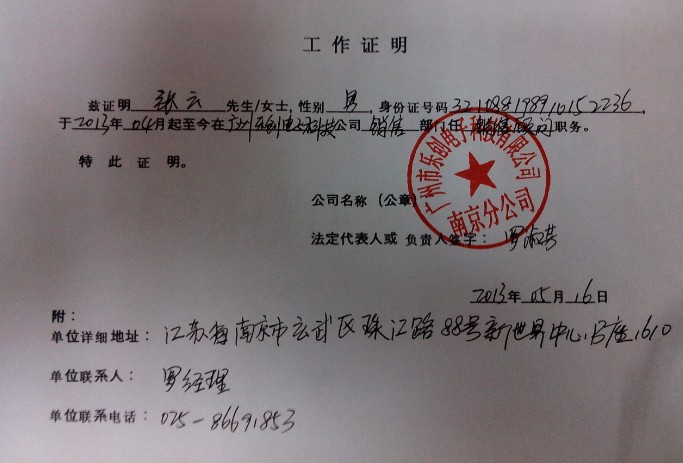 工作证明
兹证明 张云 先生/女士,性别 男 ,身份证号码 321088198910152236 ,
于 2013年 04月起至今在广州乐创电子科技公司 销售 部门任 销售顾问 职务。
特 此 证 明。
公司名称 (公章)
广州市乐创电子科技有限公司
南京分公司
法定代表人或 负责人签字: 罗淑芸
2013年 05 月 16 日
附:
单位详细地址: 江苏省南京市玄武区珠江路88号新世界中心B座1610
单位联系人: 罗经理
单位联系电话: 025-86691853